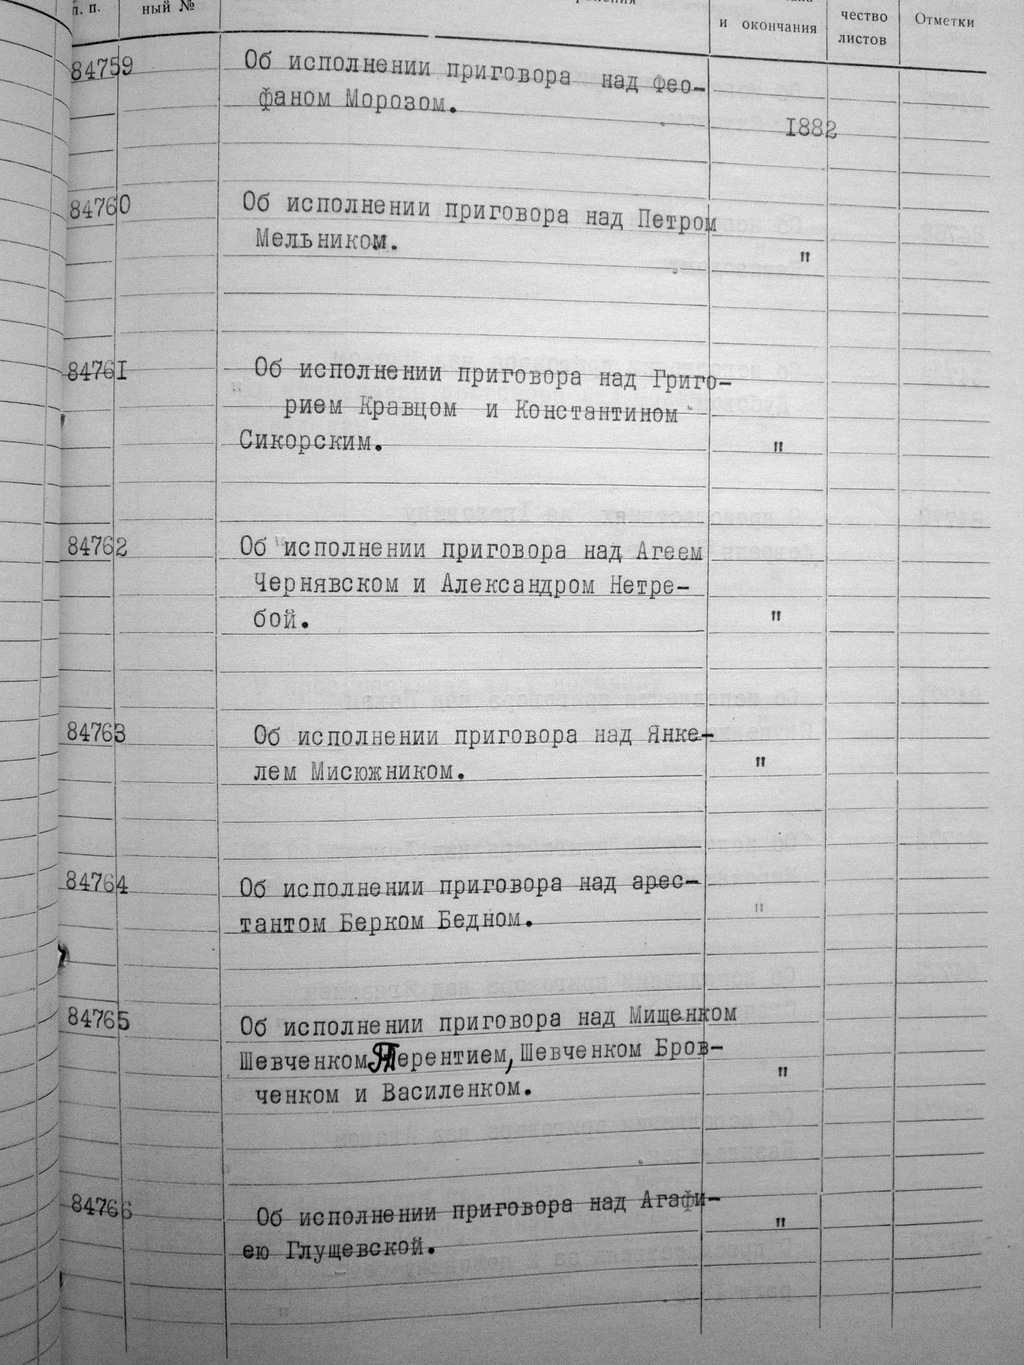 п. п.
ный №
и окончания
чество
листов
Отметки
84759
Об исполнении приговора над Фео-
фаном Морозом.
1882
84760
Об исполнении приговора над Петром
Мельником.
"
84761
Об исполнении приговора над Григо-
рием Кравцом и Константином
Сикорским.
"
84762
Об исполнении приговора над Агеем
Чернявском и Александром Нетре-
бой.
"
84763
Об исполнении приговора над Янке-
лем Мисюжником.
"
84764
Об исполнении приговора над арес-
тантом Берком Бедном.
"
84765
Об исполнении приговора над Мищенком
Шевченком Терентием, Шевченком Бров-
ченком и Василенком.
"
84766
Об исполнении приговора над Агафи-
ею Глущевской.
"